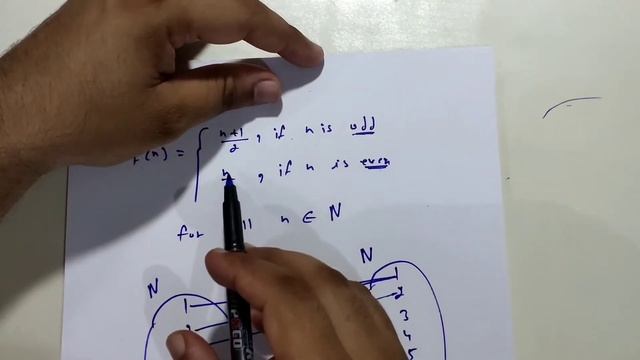 (n) = { n+1/2 , if n is odd
n , if n is even
for n ∈ N
N
N
1 1
2
3
4
5